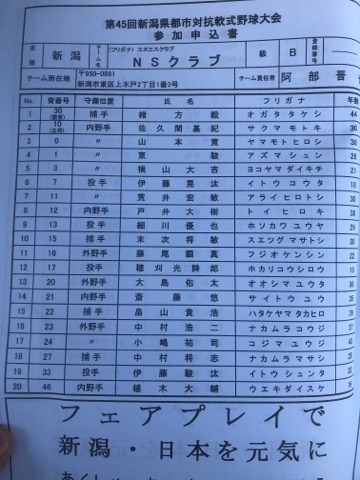 第45回新潟県都市対抗軟式野球大会
参加申込書
支部 新潟 チーム名 (フリガナ) エヌエスクラブ 級 B 登録番号
NSクラブ
チーム所在地 〒950-0891 チーム責任者 阿部晋
新潟市東区上木戸2丁目1番3号
No. 背番号 守備位置 氏名 フリガナ 年齢
1 30 (監督) 捕手 緒方毅 オガタタケシ 44
2 10 (主将) 内野手 佐久間基紀 サクマモトキ 30
3 0 〃 山本寛 ヤマモトヒロシ
4 1 〃 東駿 アズマシュン
5 3 〃 横山大吉 ヨコヤマダイキチ
6 7 投手 伊藤晃汰 イトウコウタ
7 11 〃 荒井宏敏 アライヒロトシ
8 12 内野手 戸井大樹 トイヒロキ
9 13 投手 細川優也 ホソカワユウヤ
10 15 捕手 末次将敏 スエツグマサトシ
11 16 外野手 藤尾顕真 フジオケンシン
12 17 投手 穂刈光詩郎 ホカリコウシロウ
13 20 外野手 大島佑太 オオシマユウタ
14 21 内野手 斎藤悠 サイトウユウ
15 22 捕手 畠山貴浩 ハタケヤマタカヒロ
16 23 外野手 中村浩二 ナカムラコウジ
17 24 〃 小嶋祐司 コジマユウジ
18 27 捕手 中村将志 ナカムラマサシ
19 33 投手 伊藤駿汰 イトウシュンタ
20 46 内野手 植木大輔 ウエキダイスケ
フェアプレイで
新潟・日本を元気に